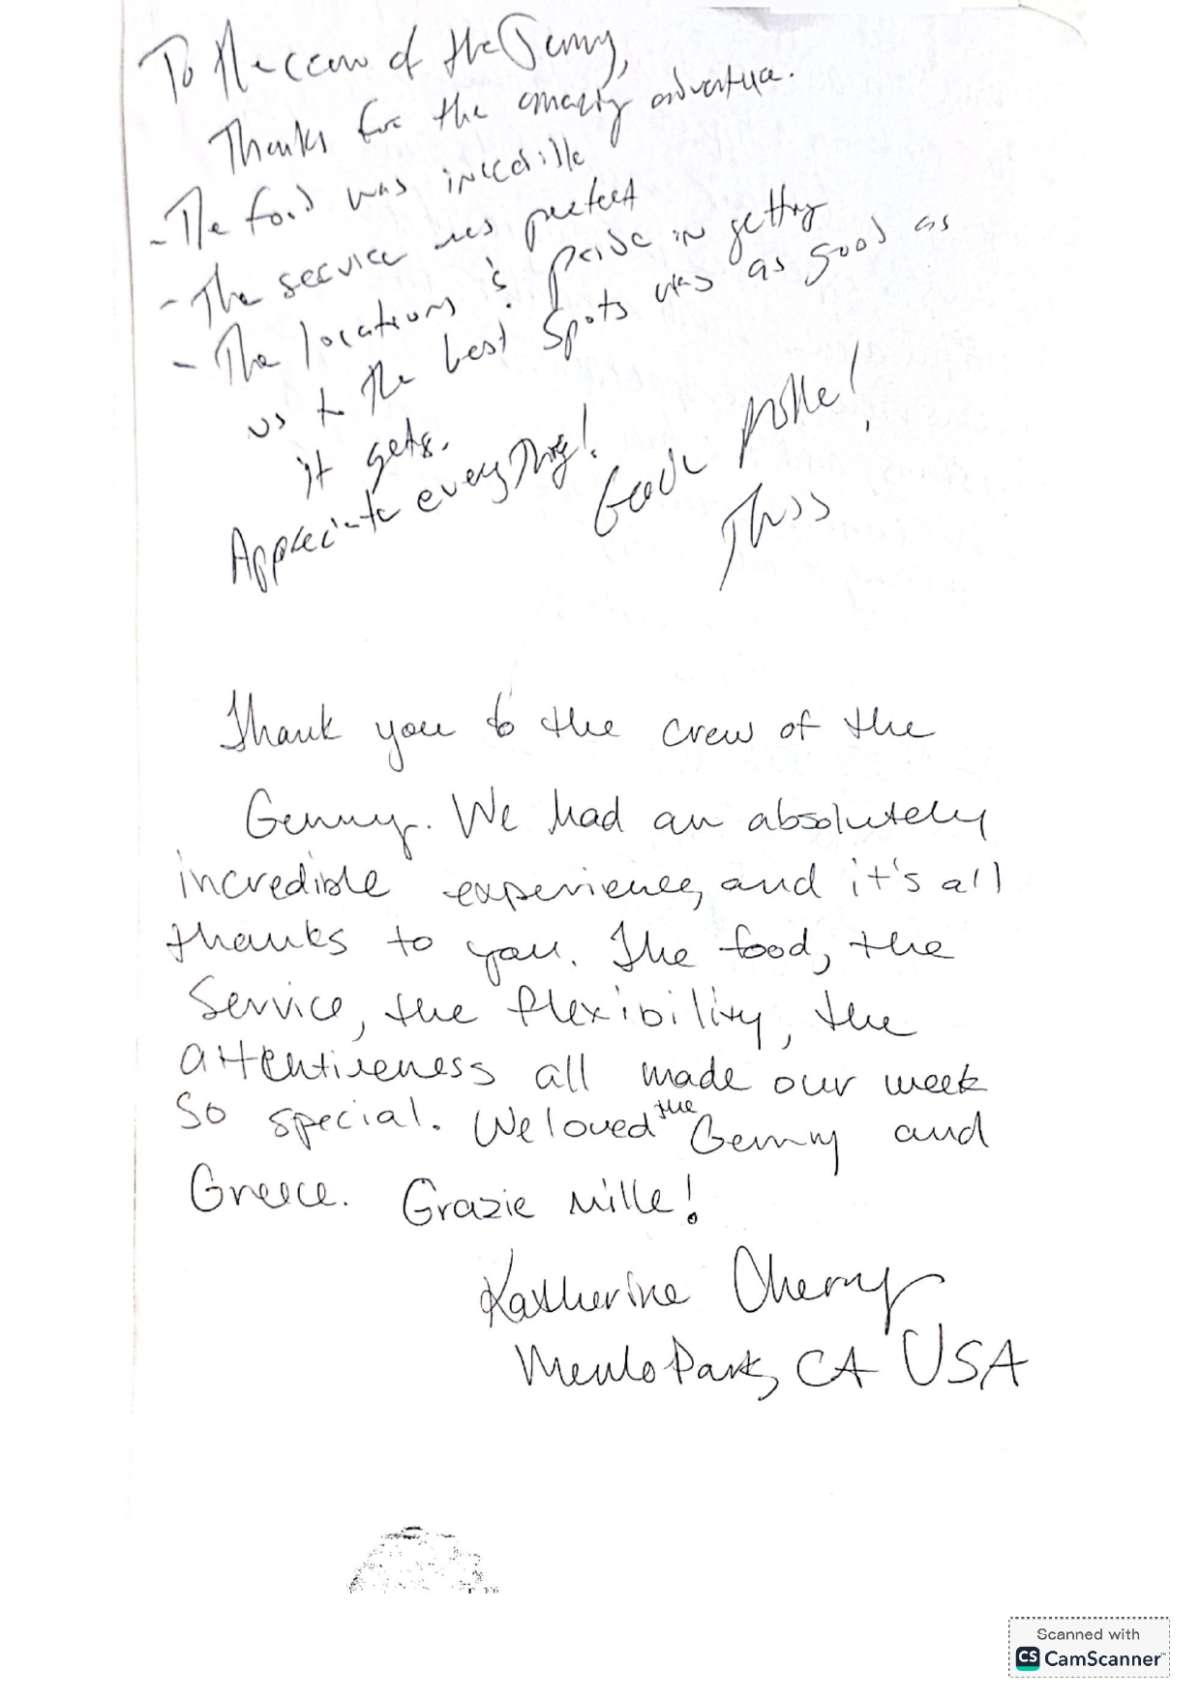 To the crew of the Genny,
Thanks for the amazing adventure.
- The food was incredible
- The service was perfect
- The locations & pride in getting
us to the best spots was as good as
it gets.
Appreciate everything!
Mille!
Thank you to the crew of the
Genny. We had an absolutely
incredible experience, and it's all
thanks to you. The food, the
Service, the flexibility, the
attentiveness all made our week
so special. We loved the Genny and
Greece. Grazie Mille!
Katherine Cherny
Menlo Park, CA USA
Scanned with
CS CamScanner